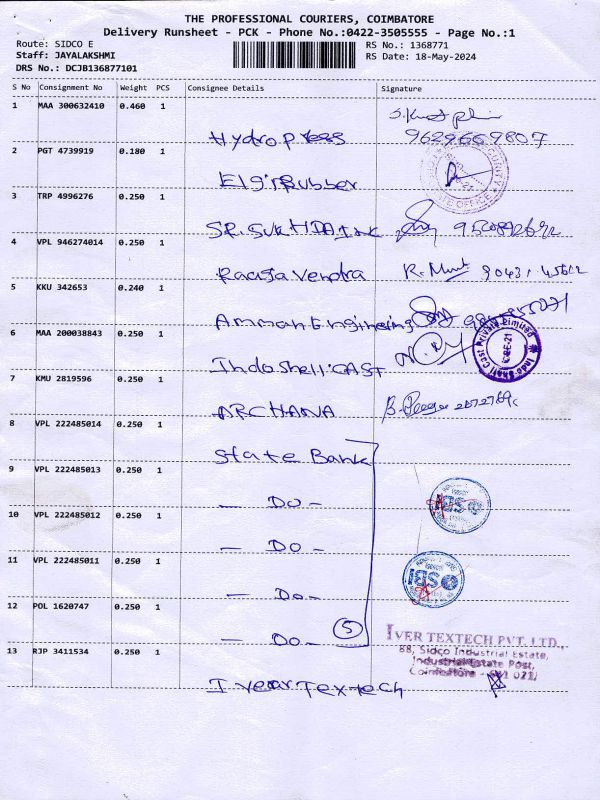 THE PROFESSIONAL COURIERS, COIMBATORE
Delivery Runsheet - PCK - Phone No.:0422-3505555 - Page No.:1
Route: SIDCO E
RS No.: 1368771
Staff: JAYALAKSHMI
RS Date: 18-May-2024
DRS No.: DCJB136877101
S No Consignment No Weight PCS Consignee Details Signature
1 MAA 300632410 0.460 1
Hydro press 9629669807
2 PGT 4739919 0.180 1
Elgi Rubber
3 TRP 4996276 0.250 1
SR. SUKHDA INK
4 VPL 946274014 0.250 1
Raaja Vendra R.
5 KKU 342653 0.240 1
Amman Engineeing
6 MAA 200038843 0.250 1
Indo Shell CAST
Indo Shell Cast Private Limited
CBE-21
7 KMU 2819596 0.250 1
ARCHANA
8 VPL 222485014 0.250 1
State Bank
9 VPL 222485013 0.250 1
- Do -
SBI
10 VPL 222485012 0.250 1
- Do -
11 VPL 222485011 0.250 1
- Do -
SBI
12 POL 1620747 0.250 1
- Do - 5
IVER TEXTECH PVT. LTD.,
88, Sidco Industrial Estate,
Industrial Estate Post,
Coimbatore - 641 021
13 RJP 3411534 0.250 1
I vear Textech